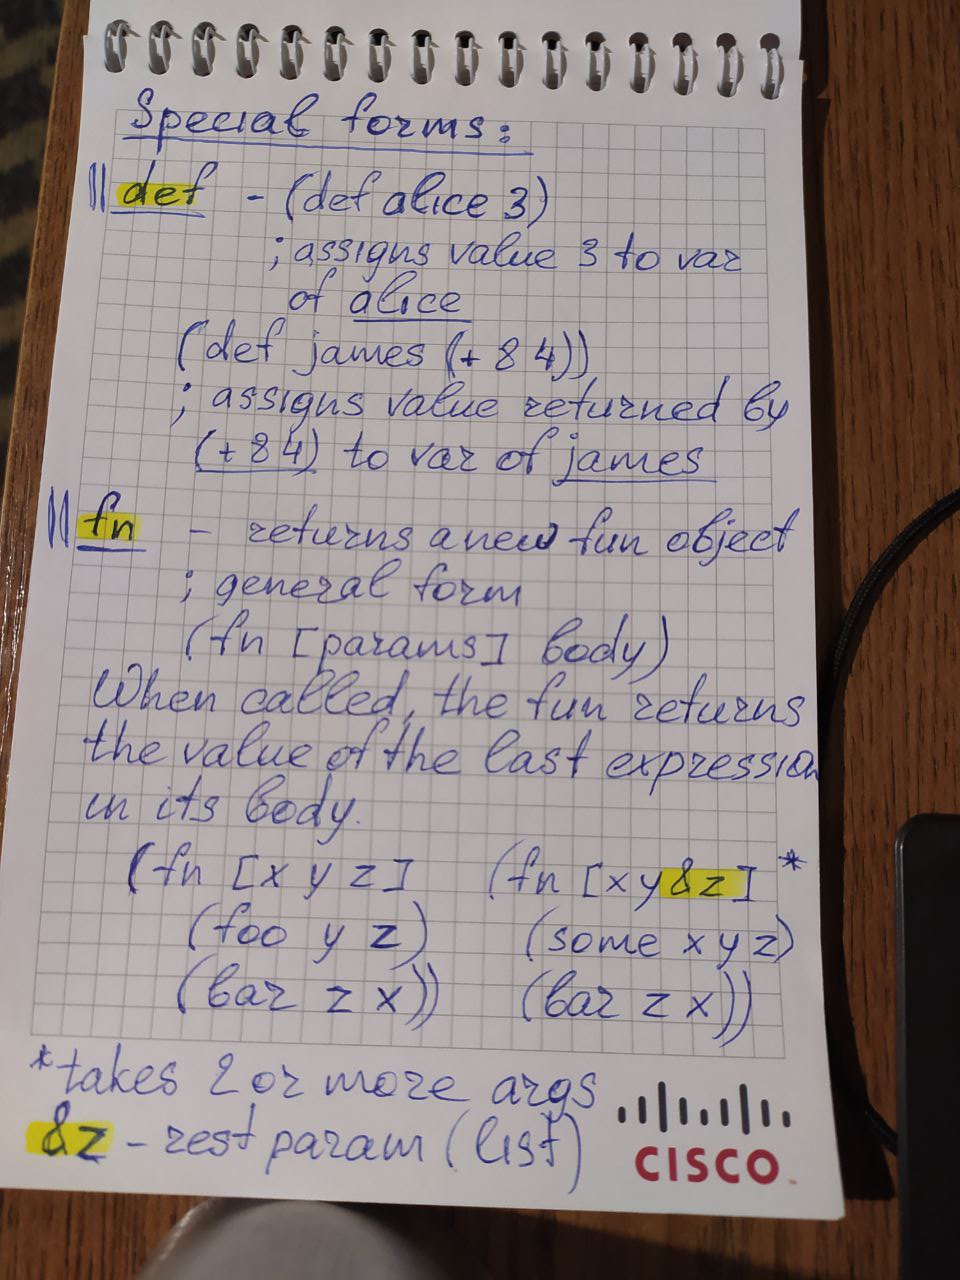 Special forms:
def - (def alice 3)
; assigns value 3 to var
of alice
(def james (+ 8 4))
; assigns value returned by
(+ 8 4) to var of james
fn - returns a new fun object
; general form
(fn [params] body)
When called, the fun returns
the value of the last expression
in its body.
(fn [x y z] (fn [x y & z] *
(foo y z) (some x y z)
(bar z x)) (bar z x))
*takes 2 or more args
&z - rest param (list)
CISCO